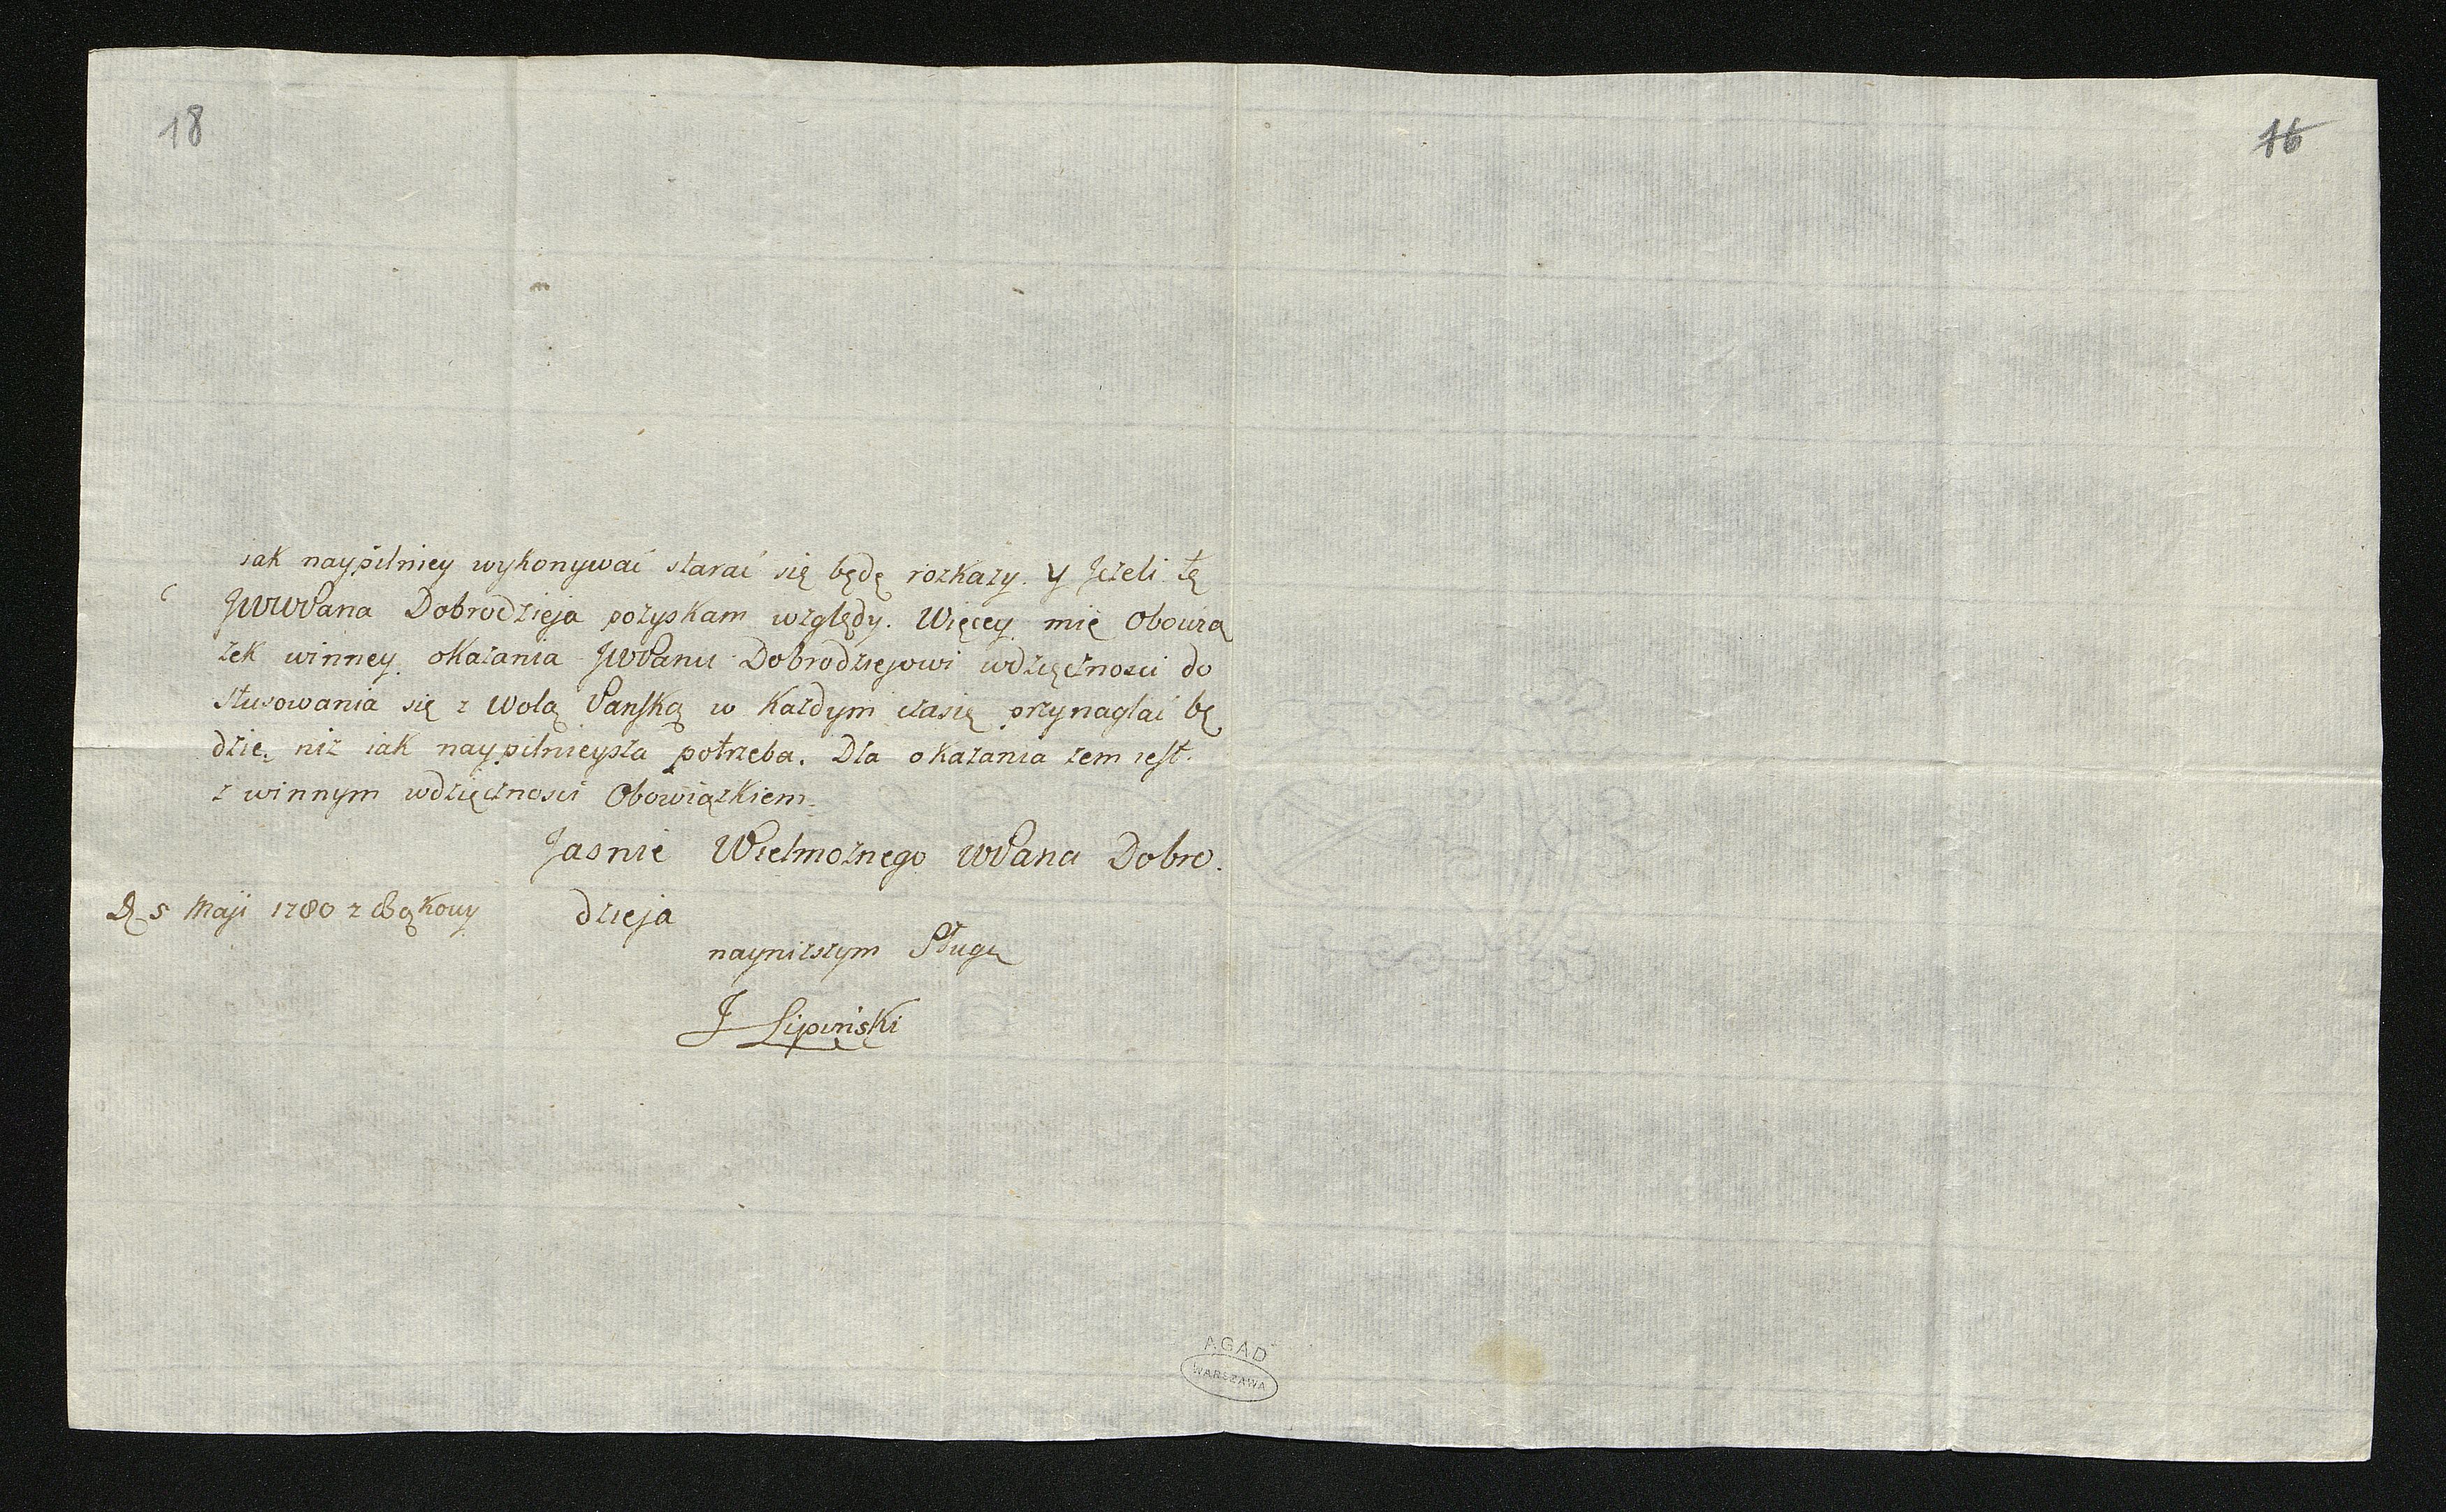 18
16
iak naypilniey wykonywać starać się będę rozkazy. Y Jeżeli tę
JWWPana Dobrodzieja pozyskam względy. Więcey mię Obowią
zek winney okazania JWPanu Dobrodziejowi wdzięcznosci do
stusowania się z Wolą Panską w Każdym czasię przynaglać bę
dzie, niż iak naypilnieysza potrzeba. Dla okazania żem iest.
z winnym wdzięcznosci Obowiązkiem.
Jasnie Wielmożnego WPana Dobro.
D. 5 Maji 1780 z Bąkowy dzieja
nayniższym Sługą
J Lipiński
AGAD
WARSZAWA